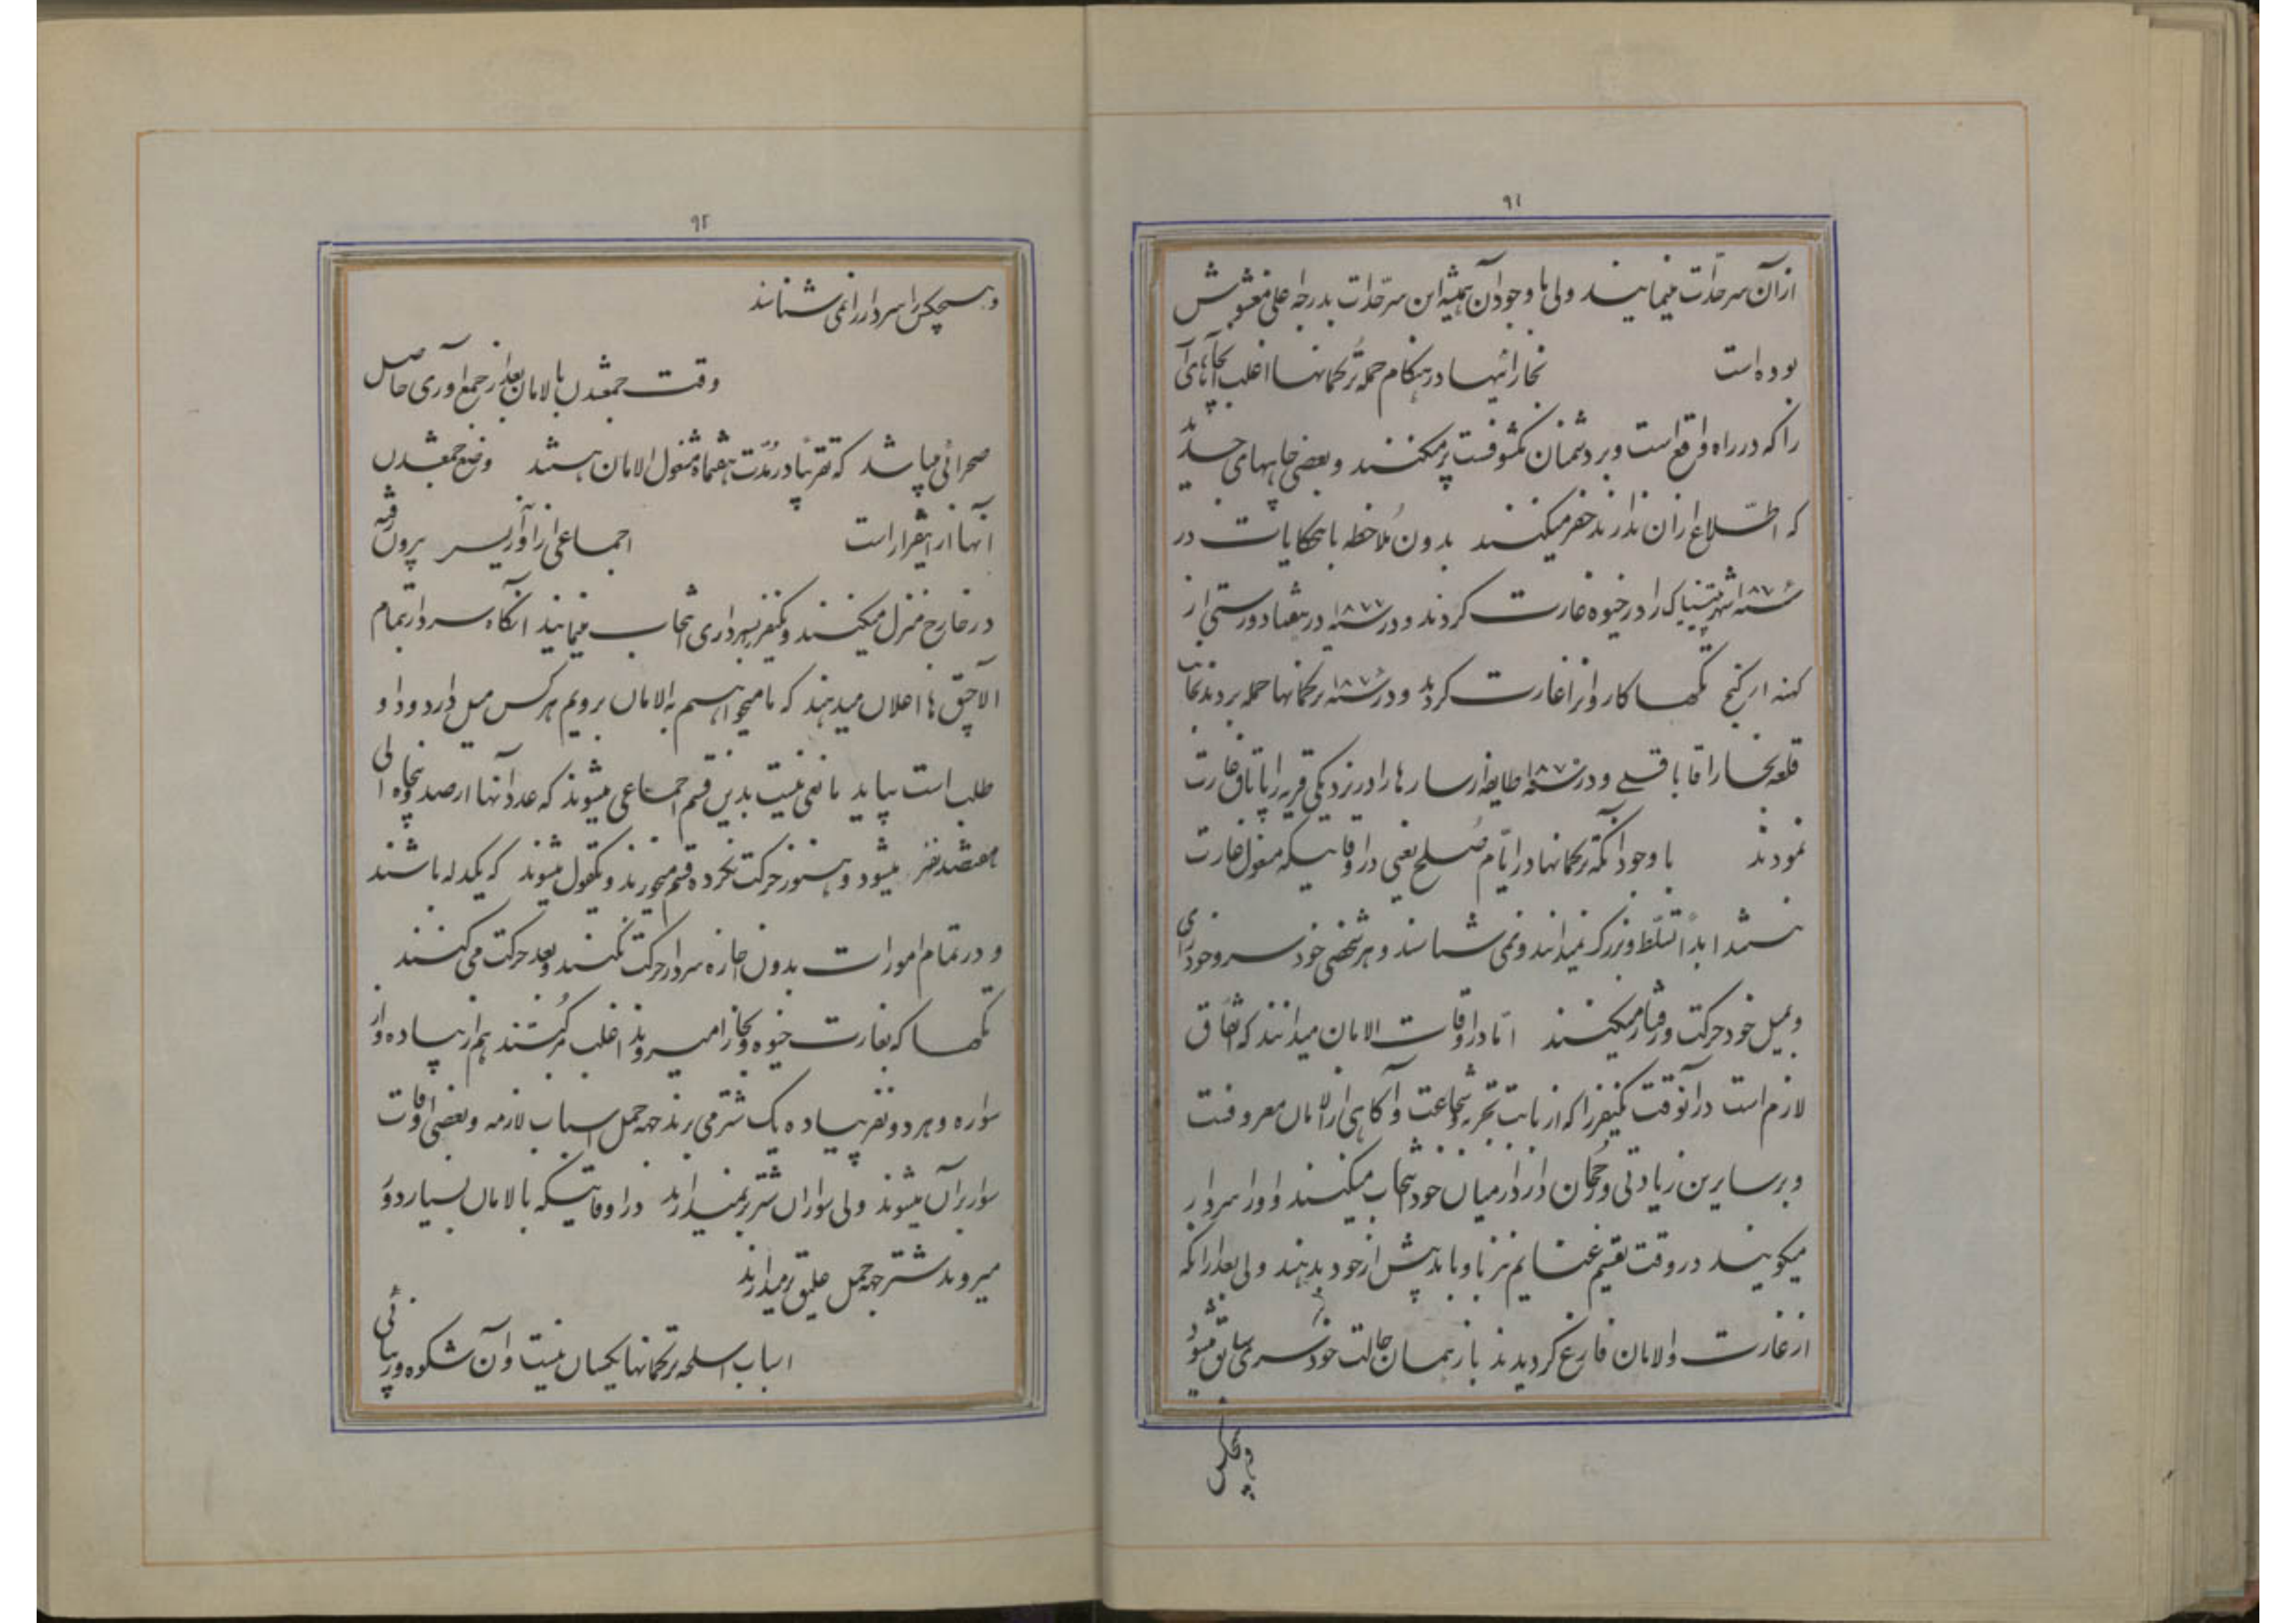 ۹۱
از آن سرحدات مینمایند ولی با وجود آن همیشه این سرحدات بدرجه اعلی مغشوش
بوده است بخارائیها در هنگام حمله ترکمانها اغلب چاههای
را که در راه واقع است و بر دشمان مکشوفست پر میکنند و بعضی چاههای جدید
که اطلاع از آن ندارند حفر میکنند بدون ملاحظه با حکایات در
سنه ۱۸۷۶ شهر را در خیوه غارت کردند و در سنه ۱۸۷۷ در هفتاد ورستی از
کهنه ارکنج تکه ها کاروانرا غارت کردند و در سنه ۱۸۷۶ ترکمانها حمله بردند بجانب
قلعه بخارا قاباقلی و در سنه ۱۸۷ طایفه ارسارها را در نزدیکی قریه غارت
نمودند با وجود آنکه ترکمانها در ایام صلح یعنی در اوقاتیکه مشغول غارت
نیستند ابداً تسلط و بزرگ نمیدانند و نمی شناسند و هر شخصی خود سر و خودرای
و بمیل خود حرکت و رفتار میکنند اما در اوقات الامان میدانند که اتفاق
لازم است در آنوقت یکنفر را که از بابت تجربه و شجاعت و آگاهی از الامان معروفست
و بر سایرین زیادتی و رجحان دارد از میان خود انتخاب میکنند و او را سردار
میگویند در وقت تقسیم غنایم نیز باو باید پیش از خود بدهند ولی بعد از آنکه
از غارت و الامان فارغ گردیدند باز همان حالت خودسری سابق میشود
و هیچکس
۹۲
و هیچکس سردار را نمی شناسند
وقت جمعشدن بالامان بعد از جمع آوری حاصل
صحرائی میباشد که تقریباً در مدت هفتماه مشغول الامان هستند وضع جمعشدن
آنها از اینقرار است اجماعی از آوریس بیرون رفته
در خارج منزل میکنند و یکنفر بسرداری انتخاب مینمایند آنگاه سردار بتمام
آلاچیق ها اعلان میدهند که ما میخواهیم به الامان برویم هر کس میل دارد و داو
طلب است بیاید مانعی نیست بدین قسم اجماعی میشوند که عدد آنها از صد و پنجاه الی
هفتصد نفر میشود و هنوز حرکت نکرده قسم میخورند و یکقول میشوند که یکدله باشند
و در تمام امورات بدون اجازه سردار حرکت نکنند و بعد حرکت می کنند
تکه ها که بغارت خیوه و بخارا میروند اغلب مرکبند هم از پیاده و از
سواره و هر دو نفر پیاده یک شتر می برند جهه حمل اسباب لازمه و بعضی اوقات
سوار بر آن میشوند ولی سواران شتر بر نمیدارند در اوقاتیکه بالامان بسیار دور
میروند شتر جهه حمل علیق بر میدارند
اسباب اسلحه ترکمانها یکسان نیست و آن شکوه و زیبائی